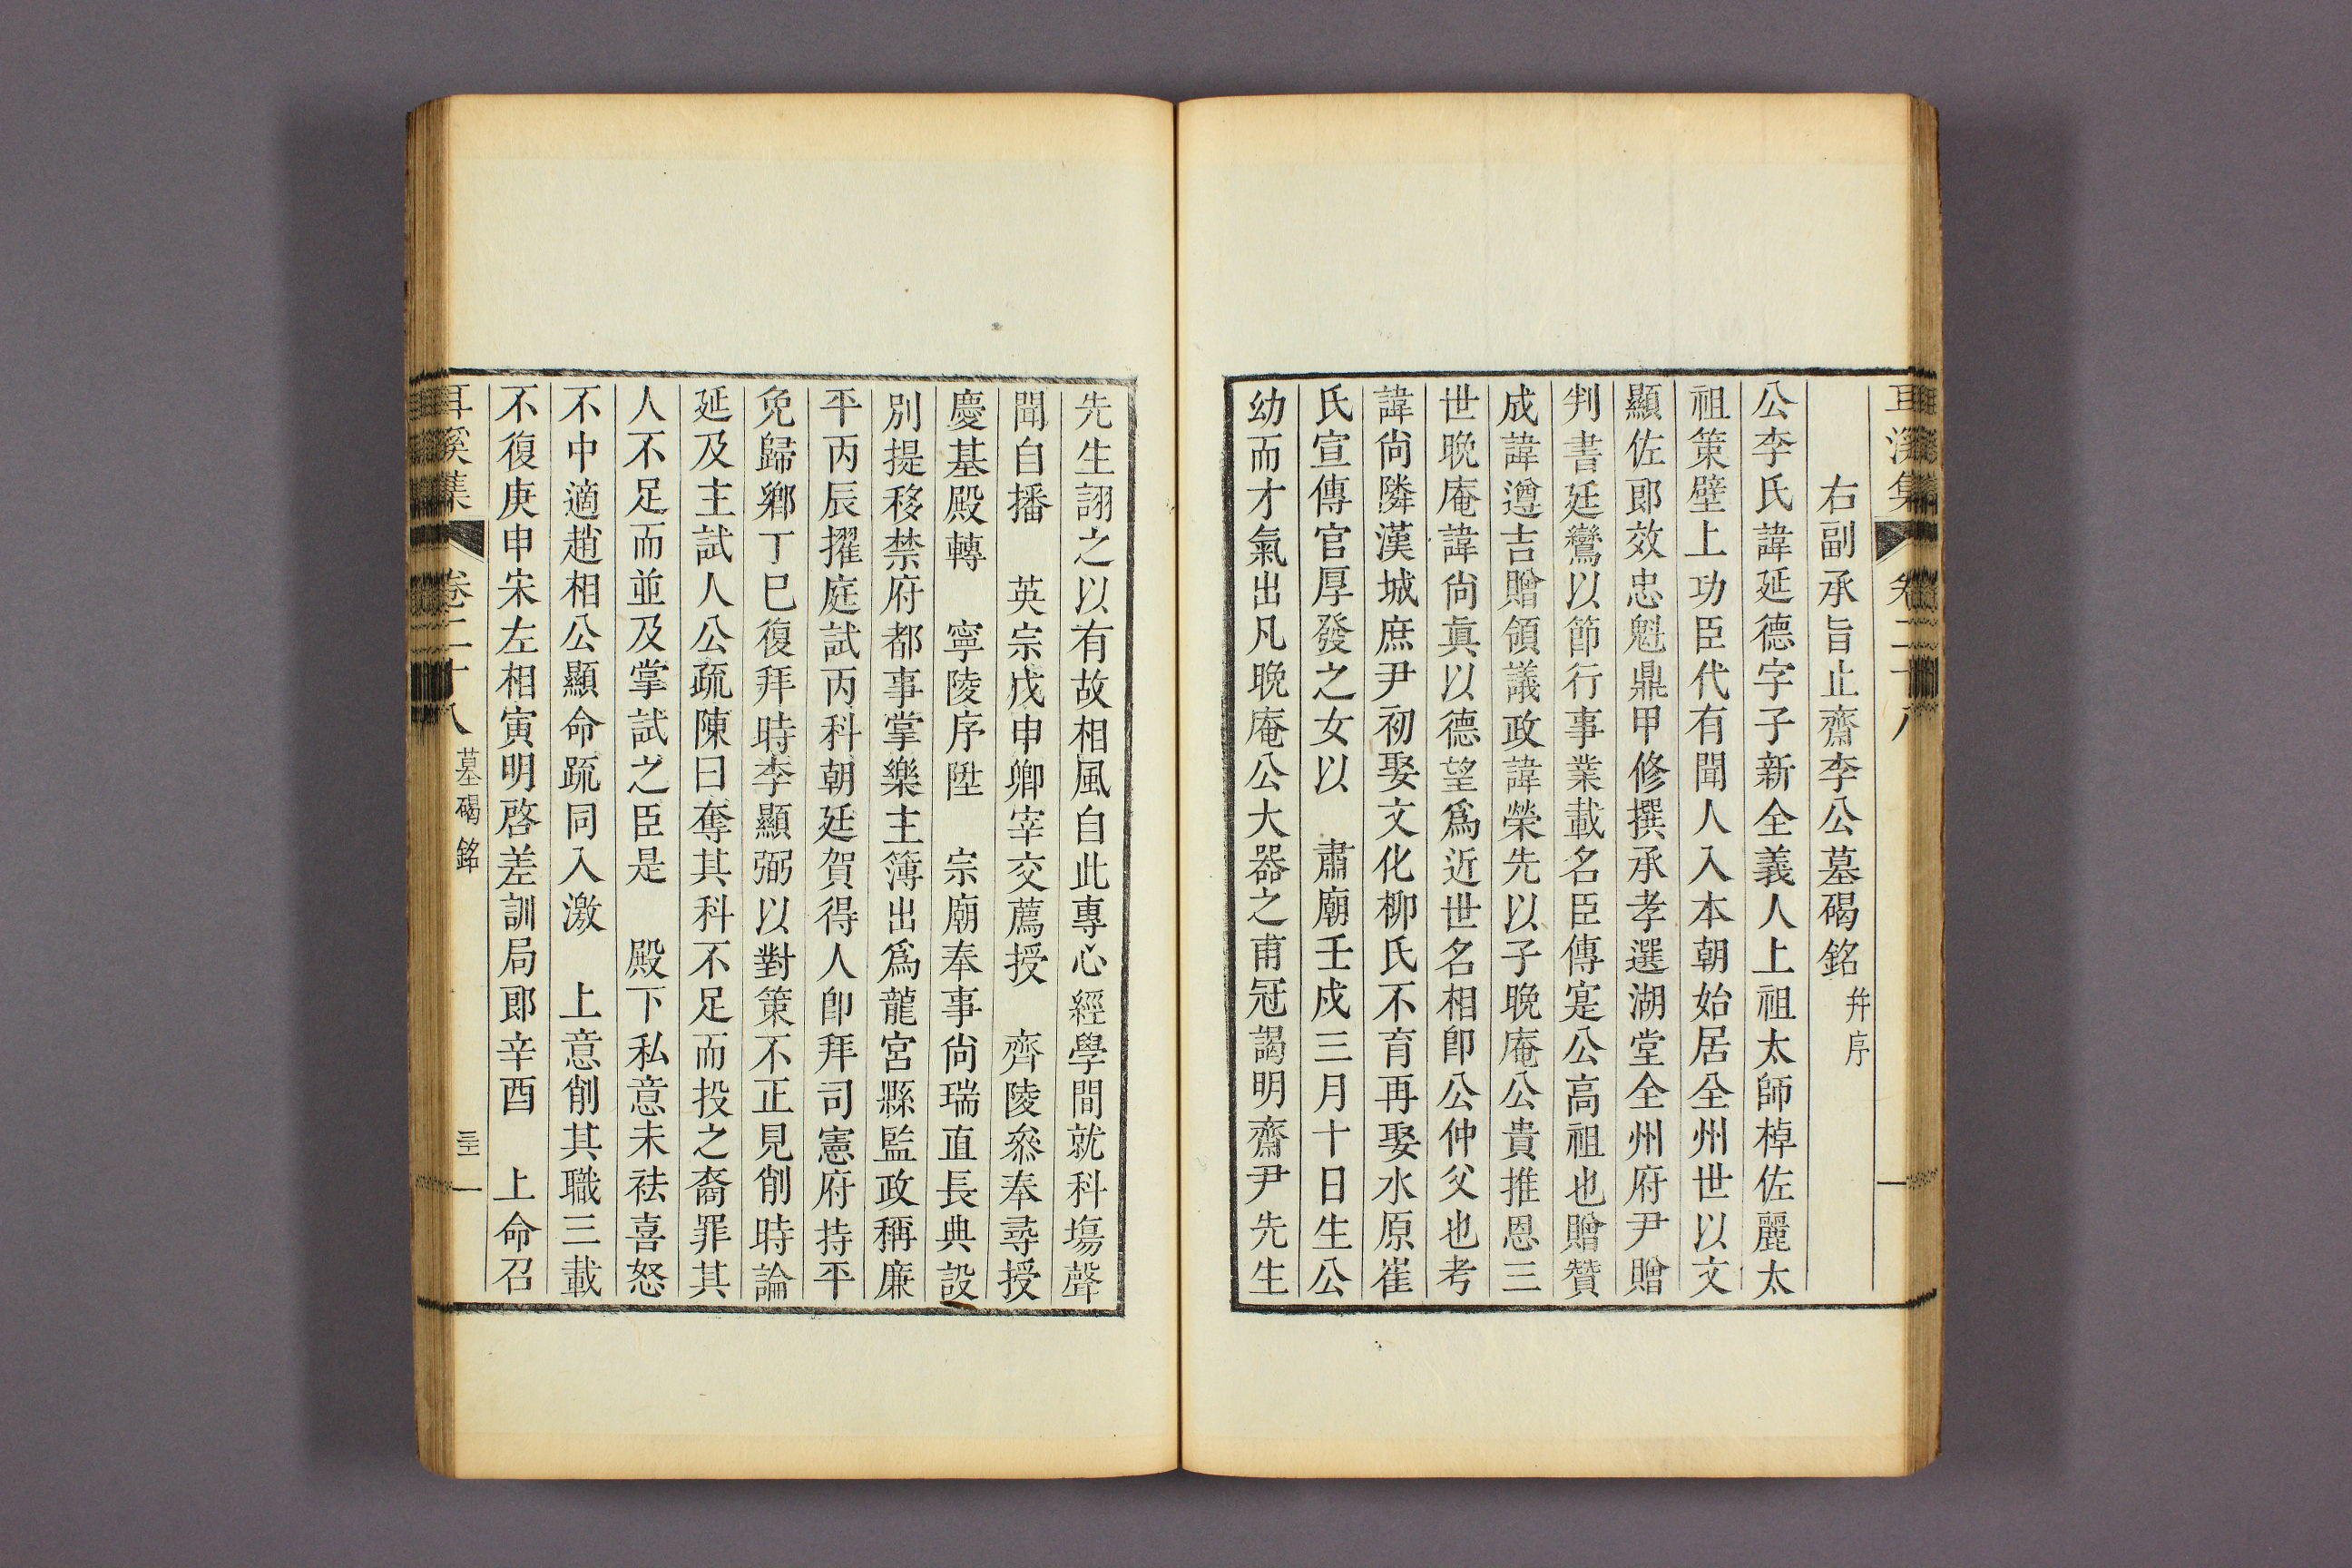 耳溪集 卷二十八 一
右副承旨止齋李公墓碣銘 幷序
公李氏諱延德字子新全義人上祖太師棹佐麗太
祖策壁上功臣代有聞人入本朝始居全州世以文
顯佐郞效忠魁鼎甲修撰承孝選湖堂全州府尹贈
判書廷鸞以節行事業載名臣傳寔公高祖也贈贊
成諱遵吉贈領議政諱榮先以子晩庵公貴推恩三
世晩庵諱尙眞以德望爲近世名相卽公仲父也考
諱尙隣漢城庶尹初娶文化柳氏不育再娶水原崔
氏宣傳官厚發之女以 肅廟壬戌三月十日生公
幼而才氣出凡晩庵公大器之甫冠謁明齋尹先生
先生詡之以有故相風自此專心經學間就科塲聲
聞自播 英宗戊申卿宰交薦授 齊陵叅奉尋授
慶基殿轉 寧陵序陞 宗廟奉事尙瑞直長典設
別提移禁府都事掌樂主簿出爲龍宮縣監政稱廉
平丙辰擢庭試丙科朝廷賀得人卽拜司憲府持平
免歸鄕丁巳復拜時李顯弼以對策不正見削時論
延及主試人公疏陳曰奪其科不足而投之裔罪其
人不足而並及掌試之臣是 殿下私意未袪喜怒
不中適趙相公顯命疏同入激 上意削其職三載
不復庚申宋左相寅明啓差訓局郞辛酉 上命召
耳溪集 卷二十八 墓碣銘 一